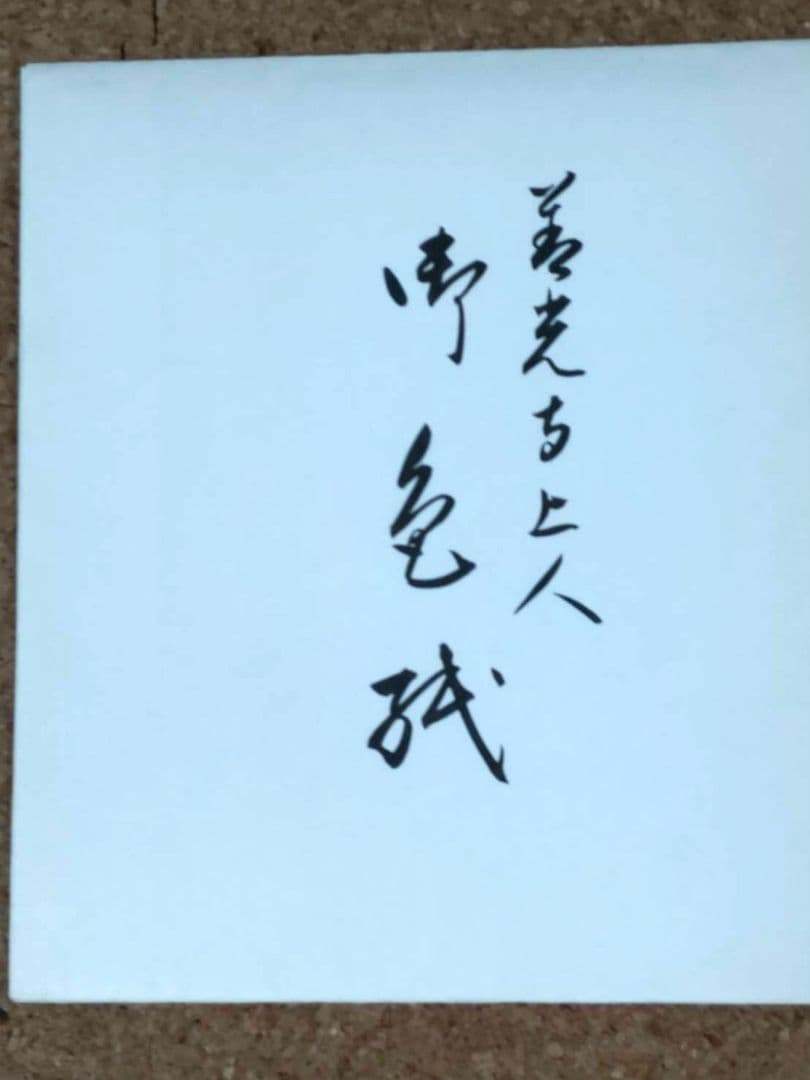 善光寺上人
御色紙